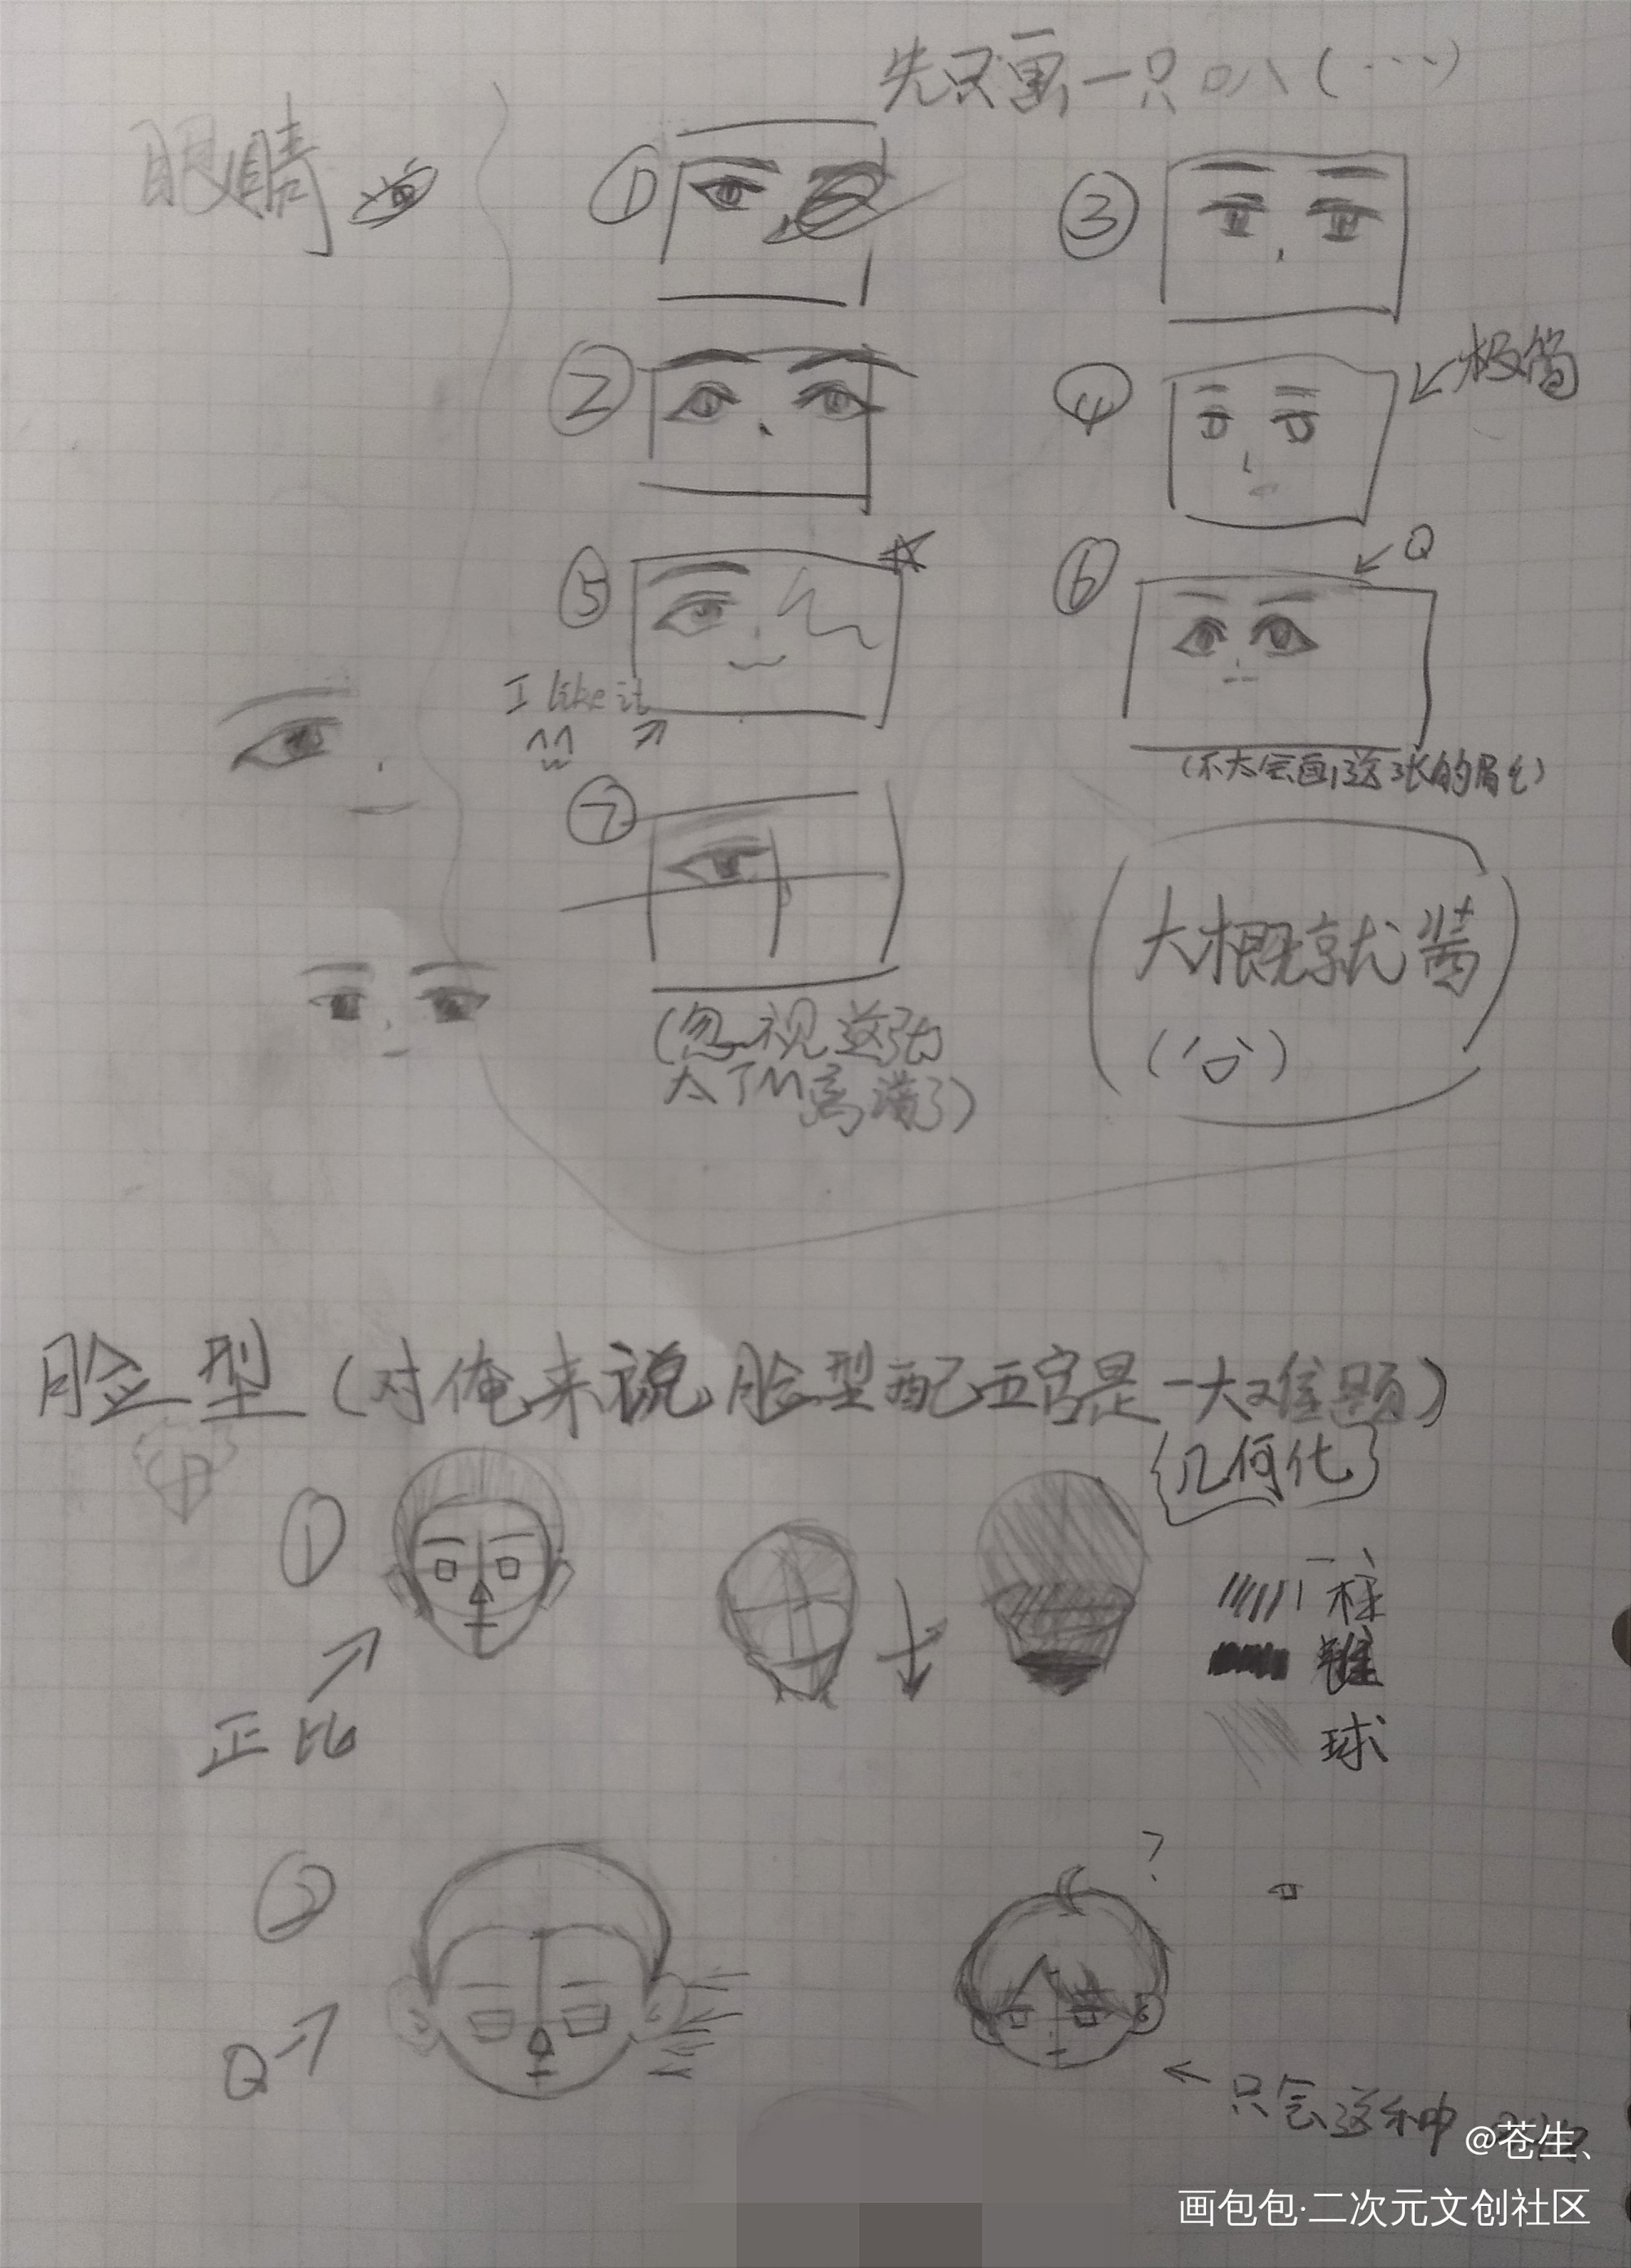 先只画一只叭(…)
眼睛
①
③
②
④
极简
⑤
⑥
Q
I like it
^^
(不太会画这张的眉毛)
⑦
大概就酱
(忽视这张
太TM离谱了)
脸型(对俺来说,脸型配五官是一大难题)
{几何化}
①
柱
锥
正比
球
②
?
Q
只会这种
@苍生、
画包包·二次元文创社区